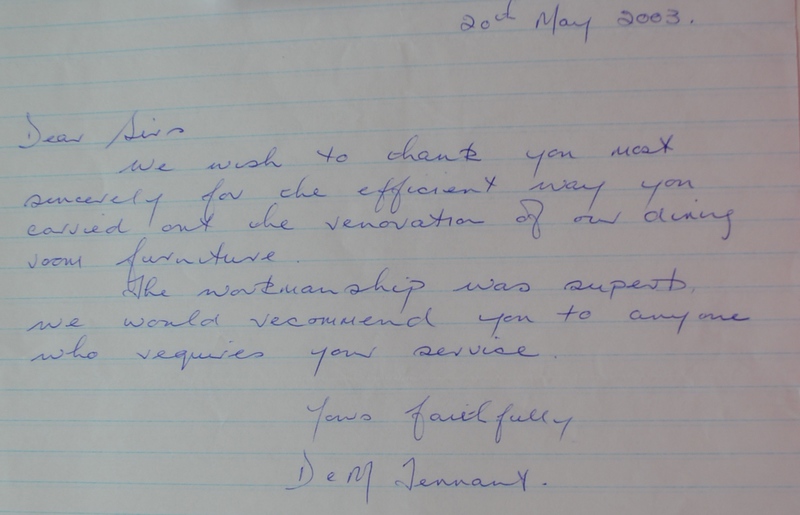 20th May 2003.
Dear Sirs
We wish to thank you most
sincerely for the efficient way you
carried out the renovation of our dining
room furniture.
The workmanship was superb,
we would recommend you to anyone
who requires your service.
Yours faithfully
D & M Tennant.